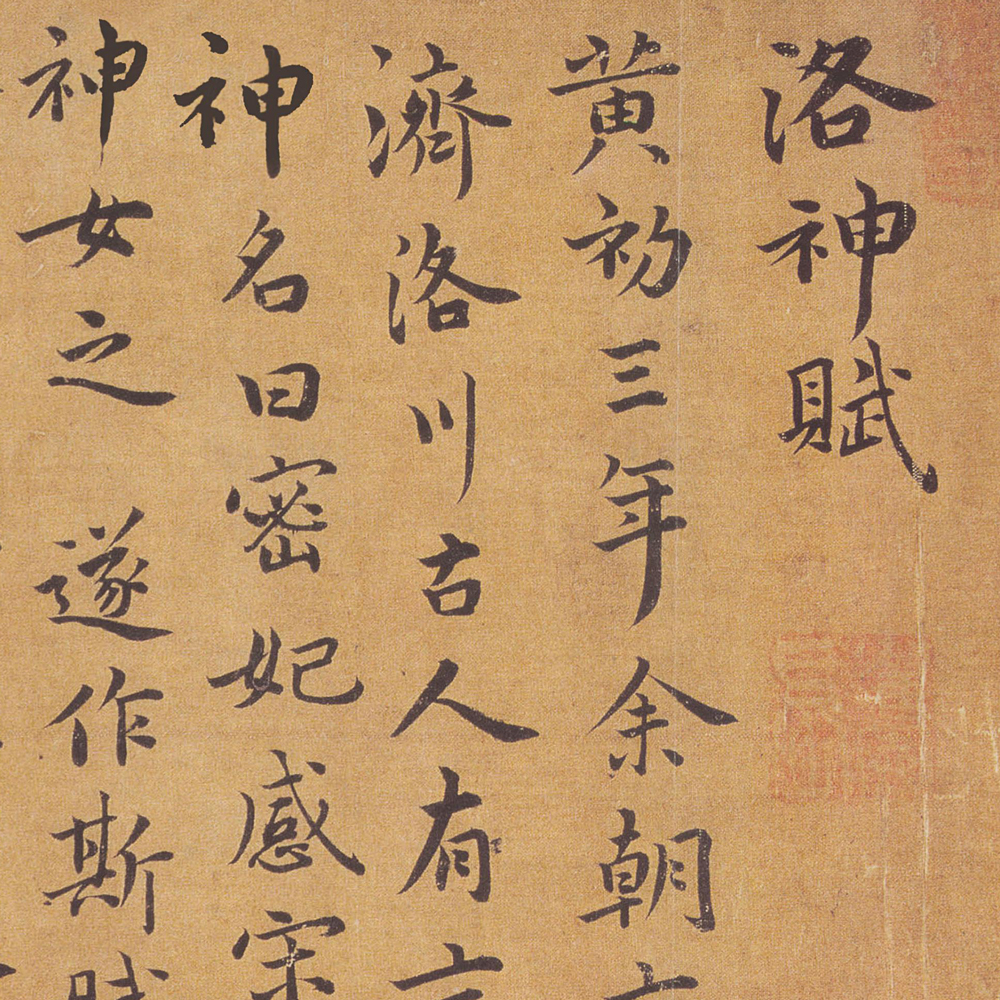 洛神賦
黄初三年余朝
濟洛川古人有言
神名曰密妃感宋
神女之遂作斯賦